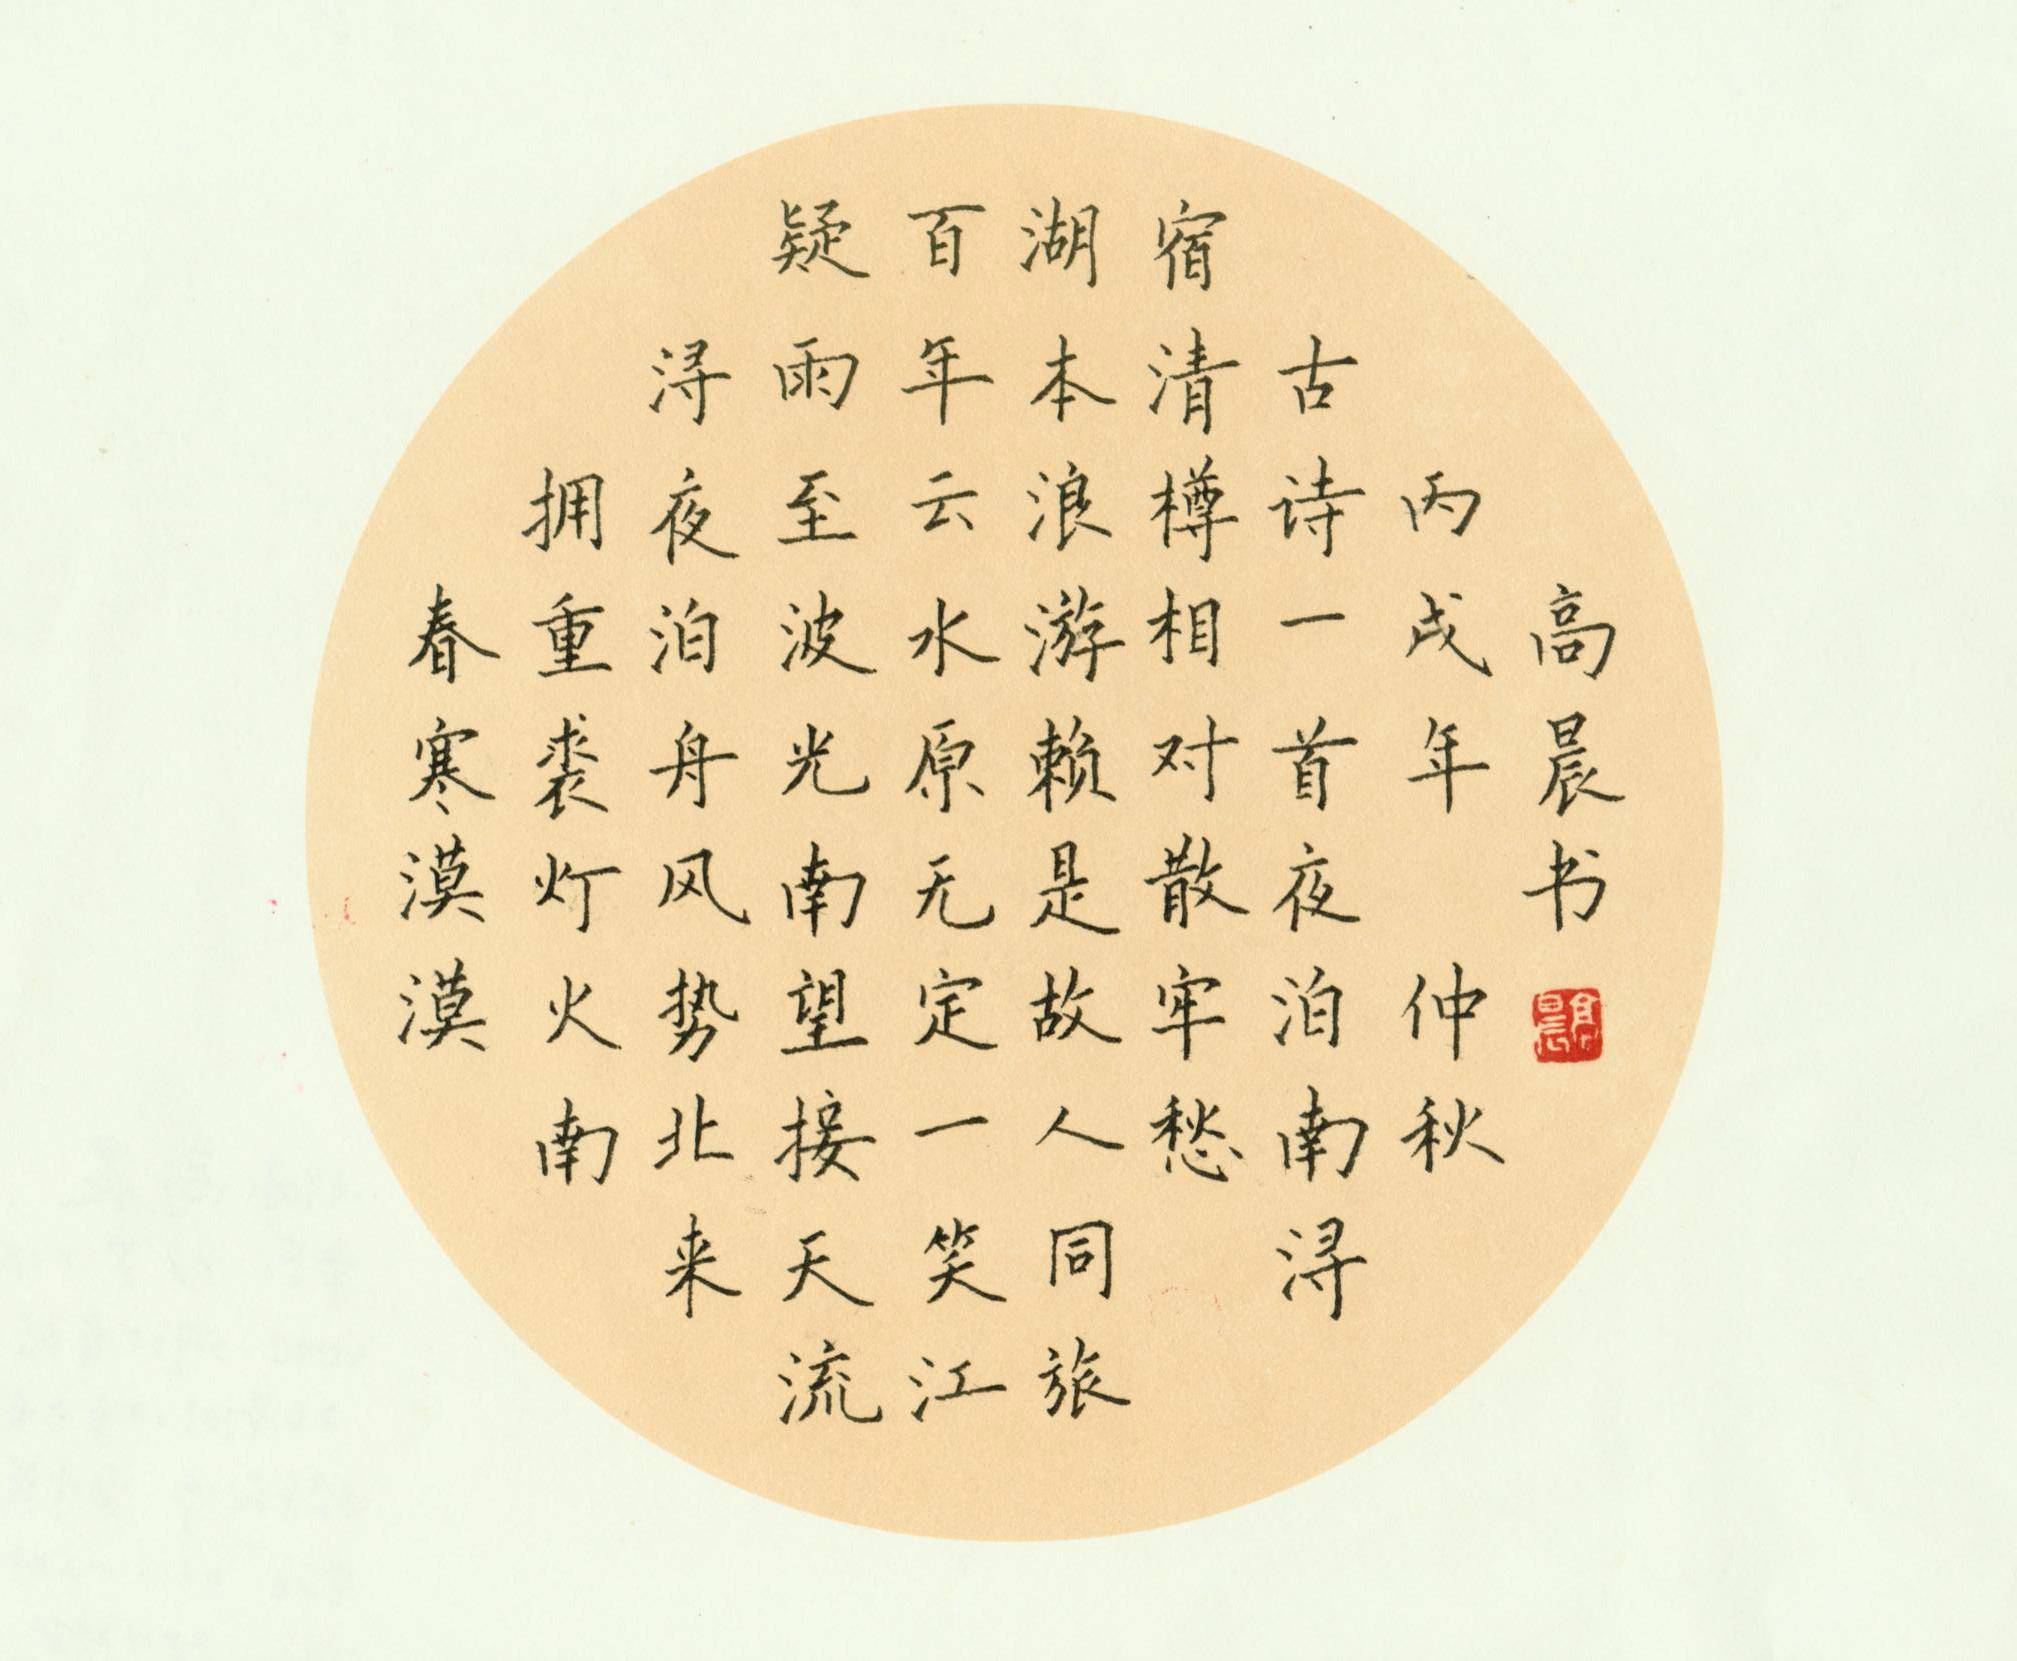 春寒漠漠
拥重裘灯火南
浔夜泊舟风势北来
疑雨至波光南望接天流
百年云水原无定一笑江
湖本浪游赖是故人同旅
宿清樽相对散牢愁
古诗一首夜泊南浔
丙戌年 仲秋
高晨书
高晨